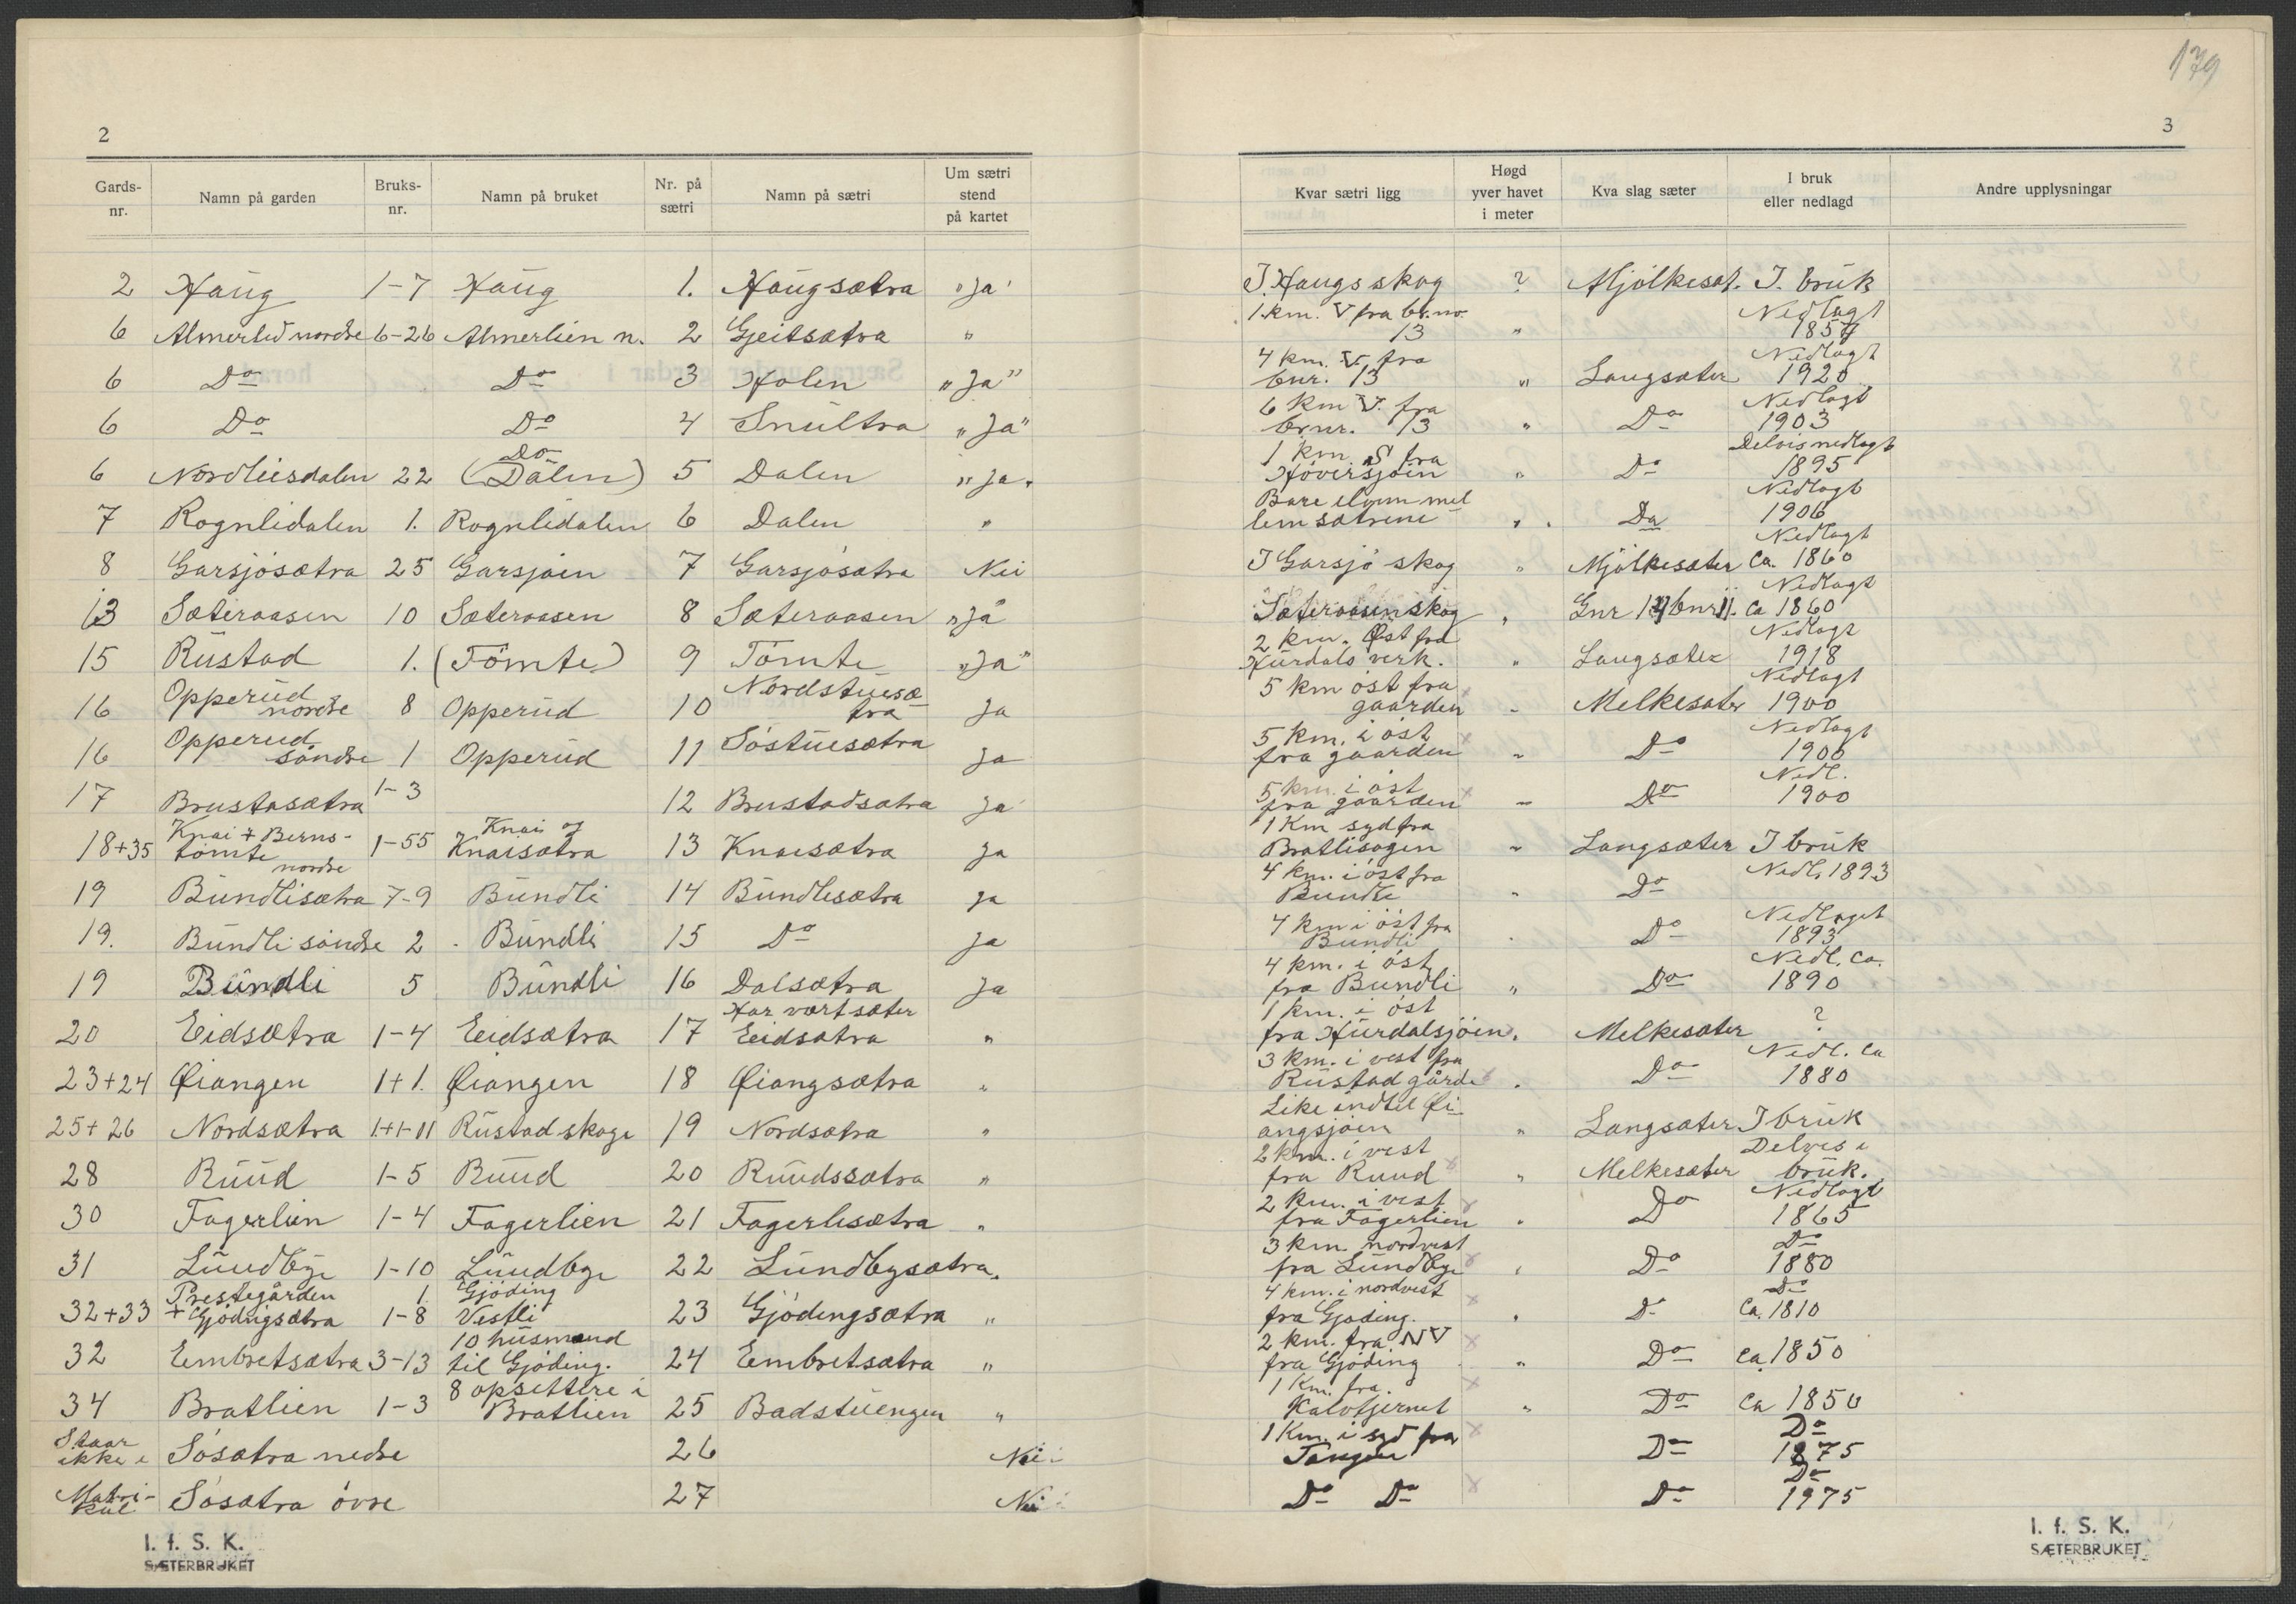 179
2
3
Gards-nr. Namn på garden Bruks-nr. Namn på bruket Nr. på sætri Namn på sætri Um sætri stend på kartet Kvar sætri ligg Høgd yver havet i meter Kva slag sæter I bruk eller nedlagd Andre upplysningar
2 Haug 1-7 Haug 1. Haugsætra "Ja" I. Haugs skog ? Mjölkesæt. I. bruk
6 Almerlid nordre 6-26 Almerlien n. 2 Gjeitsætra " 1.km. V fra br.no. 13 " Nedlagt 1857
6 Do Do 3 Holen "Ja" 4 km. V. fra bnr. 13 " Langsæter Nedlagt 1920
6 Do Do 4 Snultra "Ja" 6 km V. fra brnr. 13 " Do Nedlagt 1903
6 Nordliesdalen 22 Do (Dalen) 5 Dalen "Ja" 1 km. S fra Höversjöin " Do Delvis nedlagt 1895
7 Rognlidalen 1. Rognlidalen 6 Dalen " Bare elven mellem sætrene " Do Nedlagt 1906
8 Garsjösætra 25 Garsjöen 7 Garsjösætra Nei I Garsjö skog " Mjölkesæter Nedlagt Ca. 1860
13 Sæteraasen 10 Sæteraasen 8 Sæteraasen "Ja" Sæteraasen skog " Gnr 14 bnr 11. Nedlagt Ca 1860
15 Rustad 1. (Tömte) 9 Tömte "Ja" 2 km. Øst fra Hurdals verk. " Langsæter Nedlagt 1918
16 Opperud nordre 8 Opperud 10 Nordstuesætra Ja 5 km öst fra gaarden " Melkesæter Nedlagt 1900
16 Opperud söndre 1 Opperud 11 Söstuesætra Ja 5 km. i öst fra gaarden " Do Nedlagt 1900
17 Brustasætra 1-3 12 Brustadsætra Ja 5 km. i öst fra gaarden " Do Nedl. 1900
18+35 Knai + Bernstömte nordre 1-55 Knai og Knaisætra 13 Knaisætra Ja 1 Km syd fra Bratlisagen " Langsæter I bruk
19 Bundlisætra 7-9 Bundli 14 Bundlisætra Ja 4 km. i öst fra Bundli " Do Nedl. 1893
19. Bundli söndre 2 Bundli 15 Do Ja 4 km i öst fra Bundli " Do Nedlaget 1893
19 Bundli 5 Bundli 16 Dalsætra Ja 4 km. i öst fra Bundli " Do Nedl. Ca. 1890
20 Eidsætra 1-4 Eidsætra 17 Har vært sæter Eidsætra " 1 km. i öst fra Hurdalsjöen. Melkesæter ?
23+24 Øiangen 1+1. Øiangen 18 Øiangsætra " 3 km. i vest fra Rustad gårde " Do Nedl. Ca 1880
25+26 Nordsætra 1+1-11 Rustad skoge 19 Nordsætra " Like indtil Øiangsjöen " Langsæter I bruk
28 Ruud 1-5 Ruud 20 Ruudssætra " 2 km. i vest fra Ruud " Melkesæter Delvis i bruk.
30 Fagerlien 1-4 Fagerlien 21 Fagerlisætra " 2 km. i vest fra Fagerlien " Do Nedlagt 1865
31 Lundbye 1-10 Lundbye 22 Lundbysætra " 3 km nordvest fra Lundbye " Do Do 1880
32+33 Prestegården + Gjödingsætra 1. 1-8 Gjöding Vestli 23 Gjödingsætra " 4 km. i nordvest fra Gjöding. " Do Do Ca. 1810
32 Embretsætra 3-13 10 husmænd til Gjöding. 24 Embretsætra " 2 km. fra NV fra Gjöding " Do Ca. 1850
34 Bratlien 1-3 8 opsittere i Bratlien 25 Badstuengen " 1 Km. fra. Kalvtjernet " Do Ca 1850
Staar ikke i Sösætra nedre 26 Nei 1 Km. i syd fra Tangen Do Do 1875
Matrikul Sösætra övre 27 Nei Do Do Do Do 1975
I. f. S. K.
SÆTERBRUKET
I. f. S. K.
SÆTERBRUKET